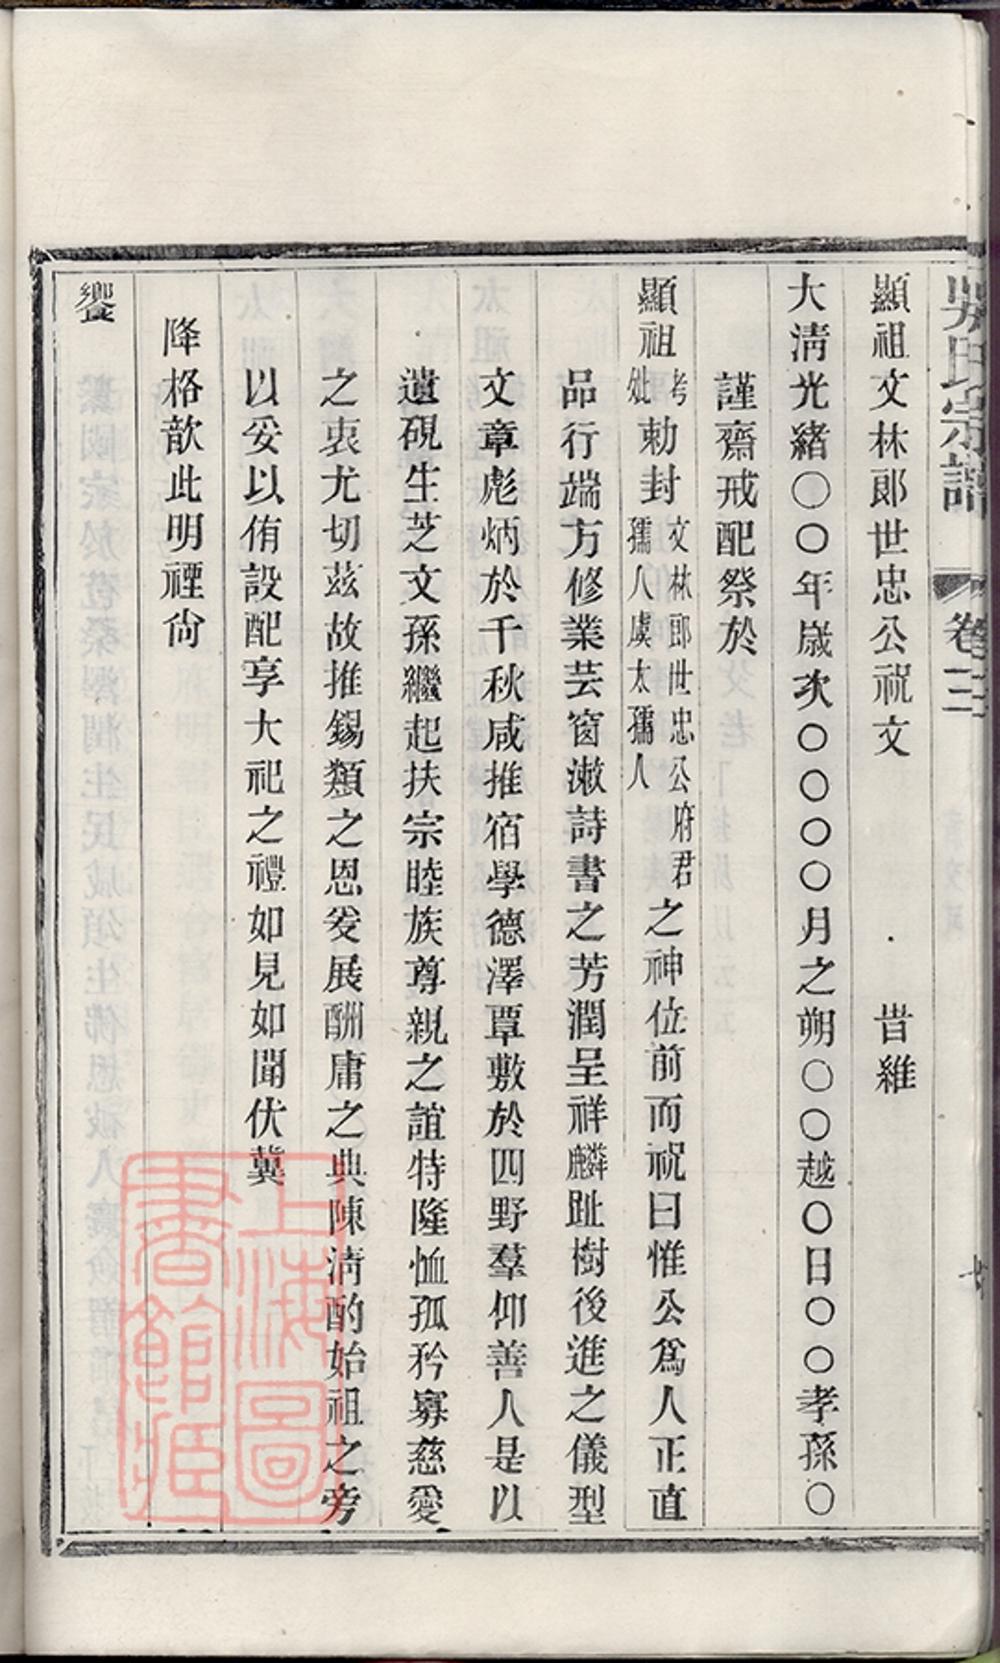 吳氏宗譜 卷三
顯祖文林郎世忠公祝文 昔維
大清光緒〇〇年歲次〇〇〇〇月之朔〇〇越〇日〇〇孝孫〇
謹齋戒配祭於
顯祖考妣勅封文林郎世忠公府君孺人虞太孺人之神位前而祝曰惟公爲人正直
品行端方修業芸窗漱詩書之芳潤呈祥麟趾樹後進之儀型
文章彪炳於千秋咸推宿學德澤覃敷於四野羣仰善人是以
遺硯生芝文孫繼起扶宗睦族尊親之誼特隆恤孤矜寡慈愛
之衷尤切茲故推錫類之恩爰展酬庸之典陳淸酌始祖之旁
以妥以侑設配享大祀之禮如見如聞伏冀
降格歆此明禋尙
饗
上海圖書館藏